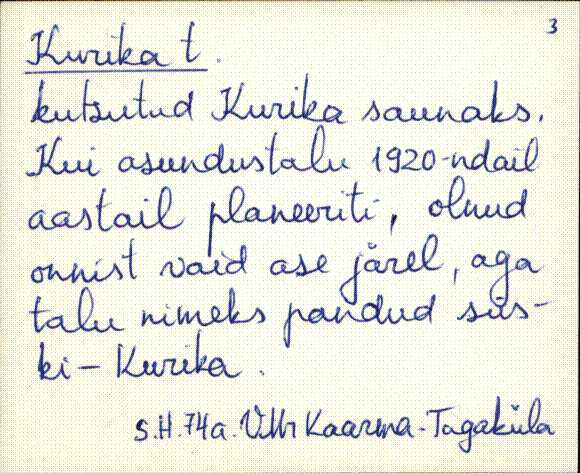 3
Kurika t.
kutsutud Kurika saunaks.
Kui asundustalu 1920-ndail
aastail planeeriti, olnud
onnist vaid ase järel, aga
talu nimeks pandud siis-
ki – Kurika.
s.H. 74a. Kaarma-Tagaküla